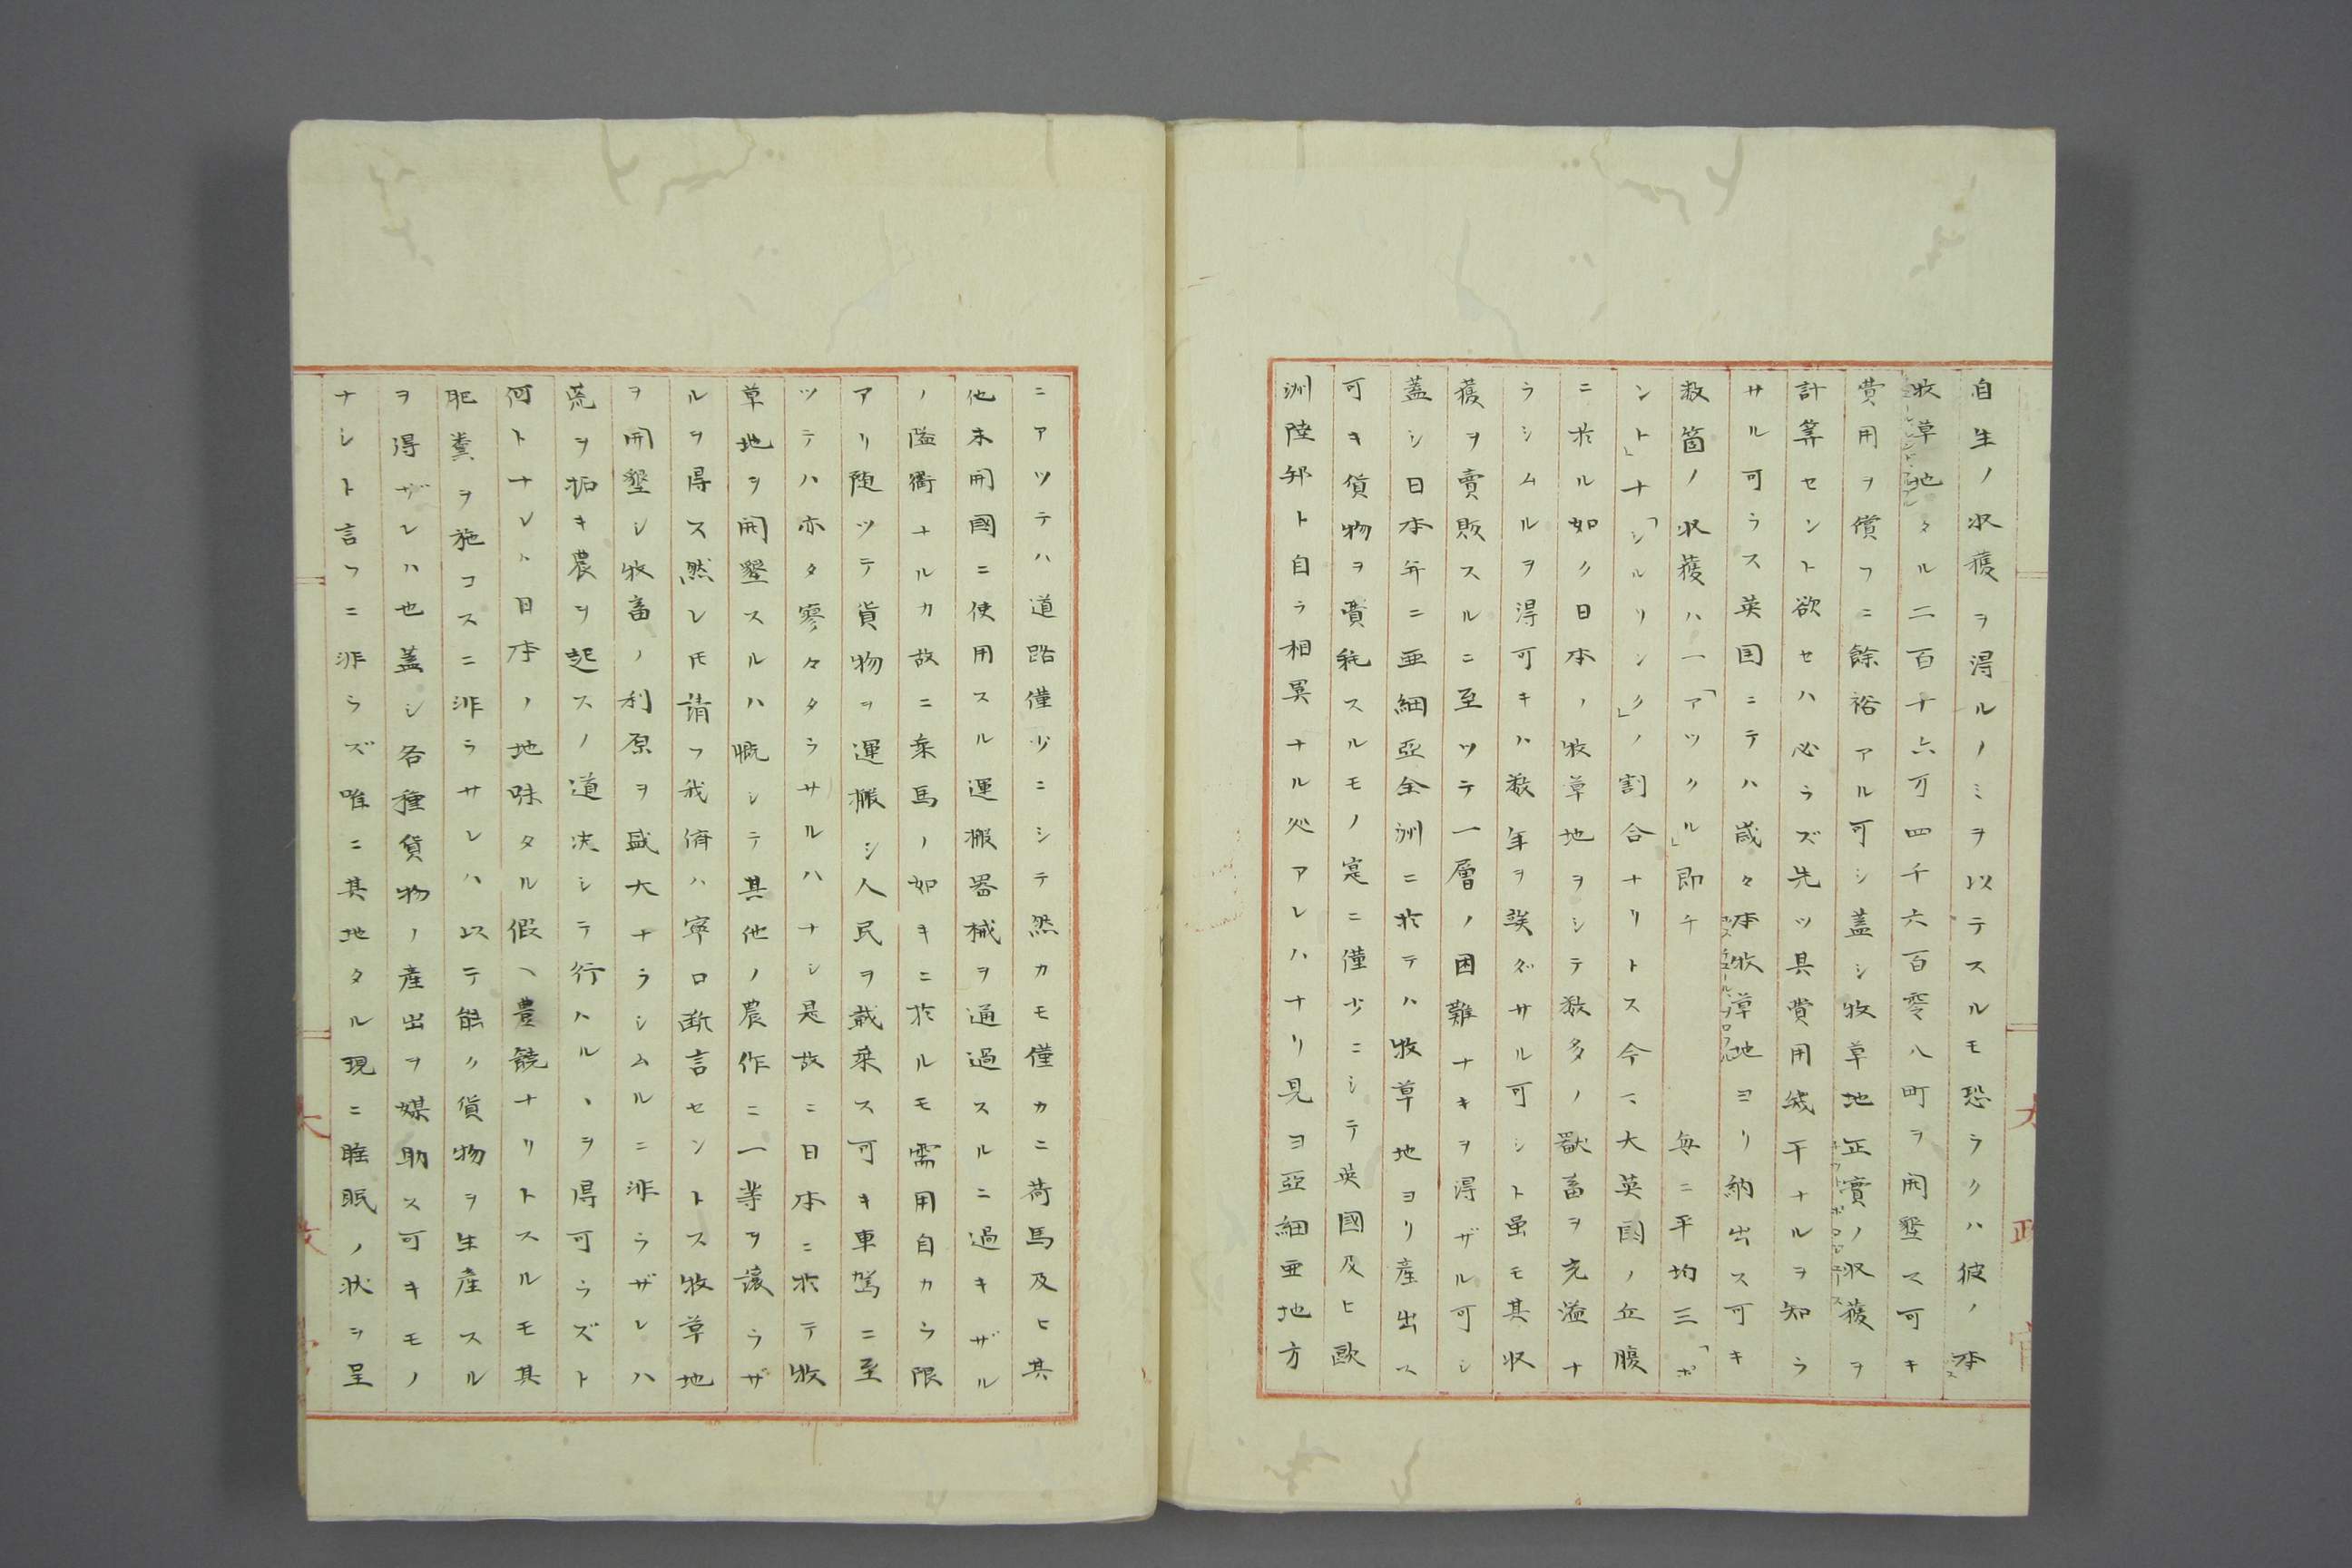 自生ノ収獲ヲ得ルノミヲ以テスルモ恐ラクハ彼ノ本
牧草地タル二百十六万四千六百零八町ヲ開墾ス可キ
費用ヲ償フニ餘裕アル可シ蓋シ牧草地正實ノ収獲ヲ
計筭セント欲セハ必ラズ先ツ具費用幾干ナルヲ知ラ
サル可ラス英国ニテハ歳々本牧草地ヨリ納出ス可キ
数箇ノ収獲ハ一「アックル」即チ 毎ニ平均三「ポ
ント」十「シルリンク」ノ割合ナリトス今マ大英国ノ丘腹
ニ於ル如ク日本ノ牧草地ヲシテ数多ノ獸畜ヲ充溢ナ
ラシムルヲ得可キハ数年ヲ俟ダサル可シト虽モ其収
獲ヲ賣販スルニ至ツテ一層ノ困難ナキヲ得ザル可シ
蓋シ日本并ニ亜細亞全洲ニ於テハ牧草地ヨリ産出ス
可キ貨物ヲ費耗スルモノ寔ニ僅少ニシテ英國及ヒ歐
洲陸邦ト自ラ相異ナル処アレハナリ見ヨ亞細亜地方
ニアツテハ道路僅少ニシテ然カモ僅カニ荷馬及ヒ其
他未開國ニ使用スル運搬器械ヲ通過スルニ過キザル
ノ隘衢ナルカ故ニ乗馬ノ如キニ於ルモ需用自カラ限
アリ随ツテ貨物ヲ運搬シ人民ヲ載乗ス可キ車駕ニ至
ツテハ亦タ寥々タラサルハナシ是故ニ日本ニ於テ牧
草地ヲ開墾スルハ慨シテ其他ノ農作ニ一等ヲ譲ラザ
ルヲ得ス然レ𪜈請フ我儕ハ寧ロ断言セントス牧草地
ヲ開墾シ牧畜ノ利原ヲ盛大ナラシムルニ非ラザレハ
荒ヲ拓キ農ヲ起スノ道决シテ行ハルヽヲ得可ラズト
何トナレハ日本ノ地味タル假ヘ豊饒ナリトスルモ其
肥糞ヲ施コスニ非ラサレハ以テ能ク貨物ヲ生産スル
ヲ得ザレハ也蓋シ各種貨物ノ産出ヲ媒助ス可キモノ
ナシト言フニ非ラズ唯ニ其地タル現ニ睡眠ノ状ヲ呈